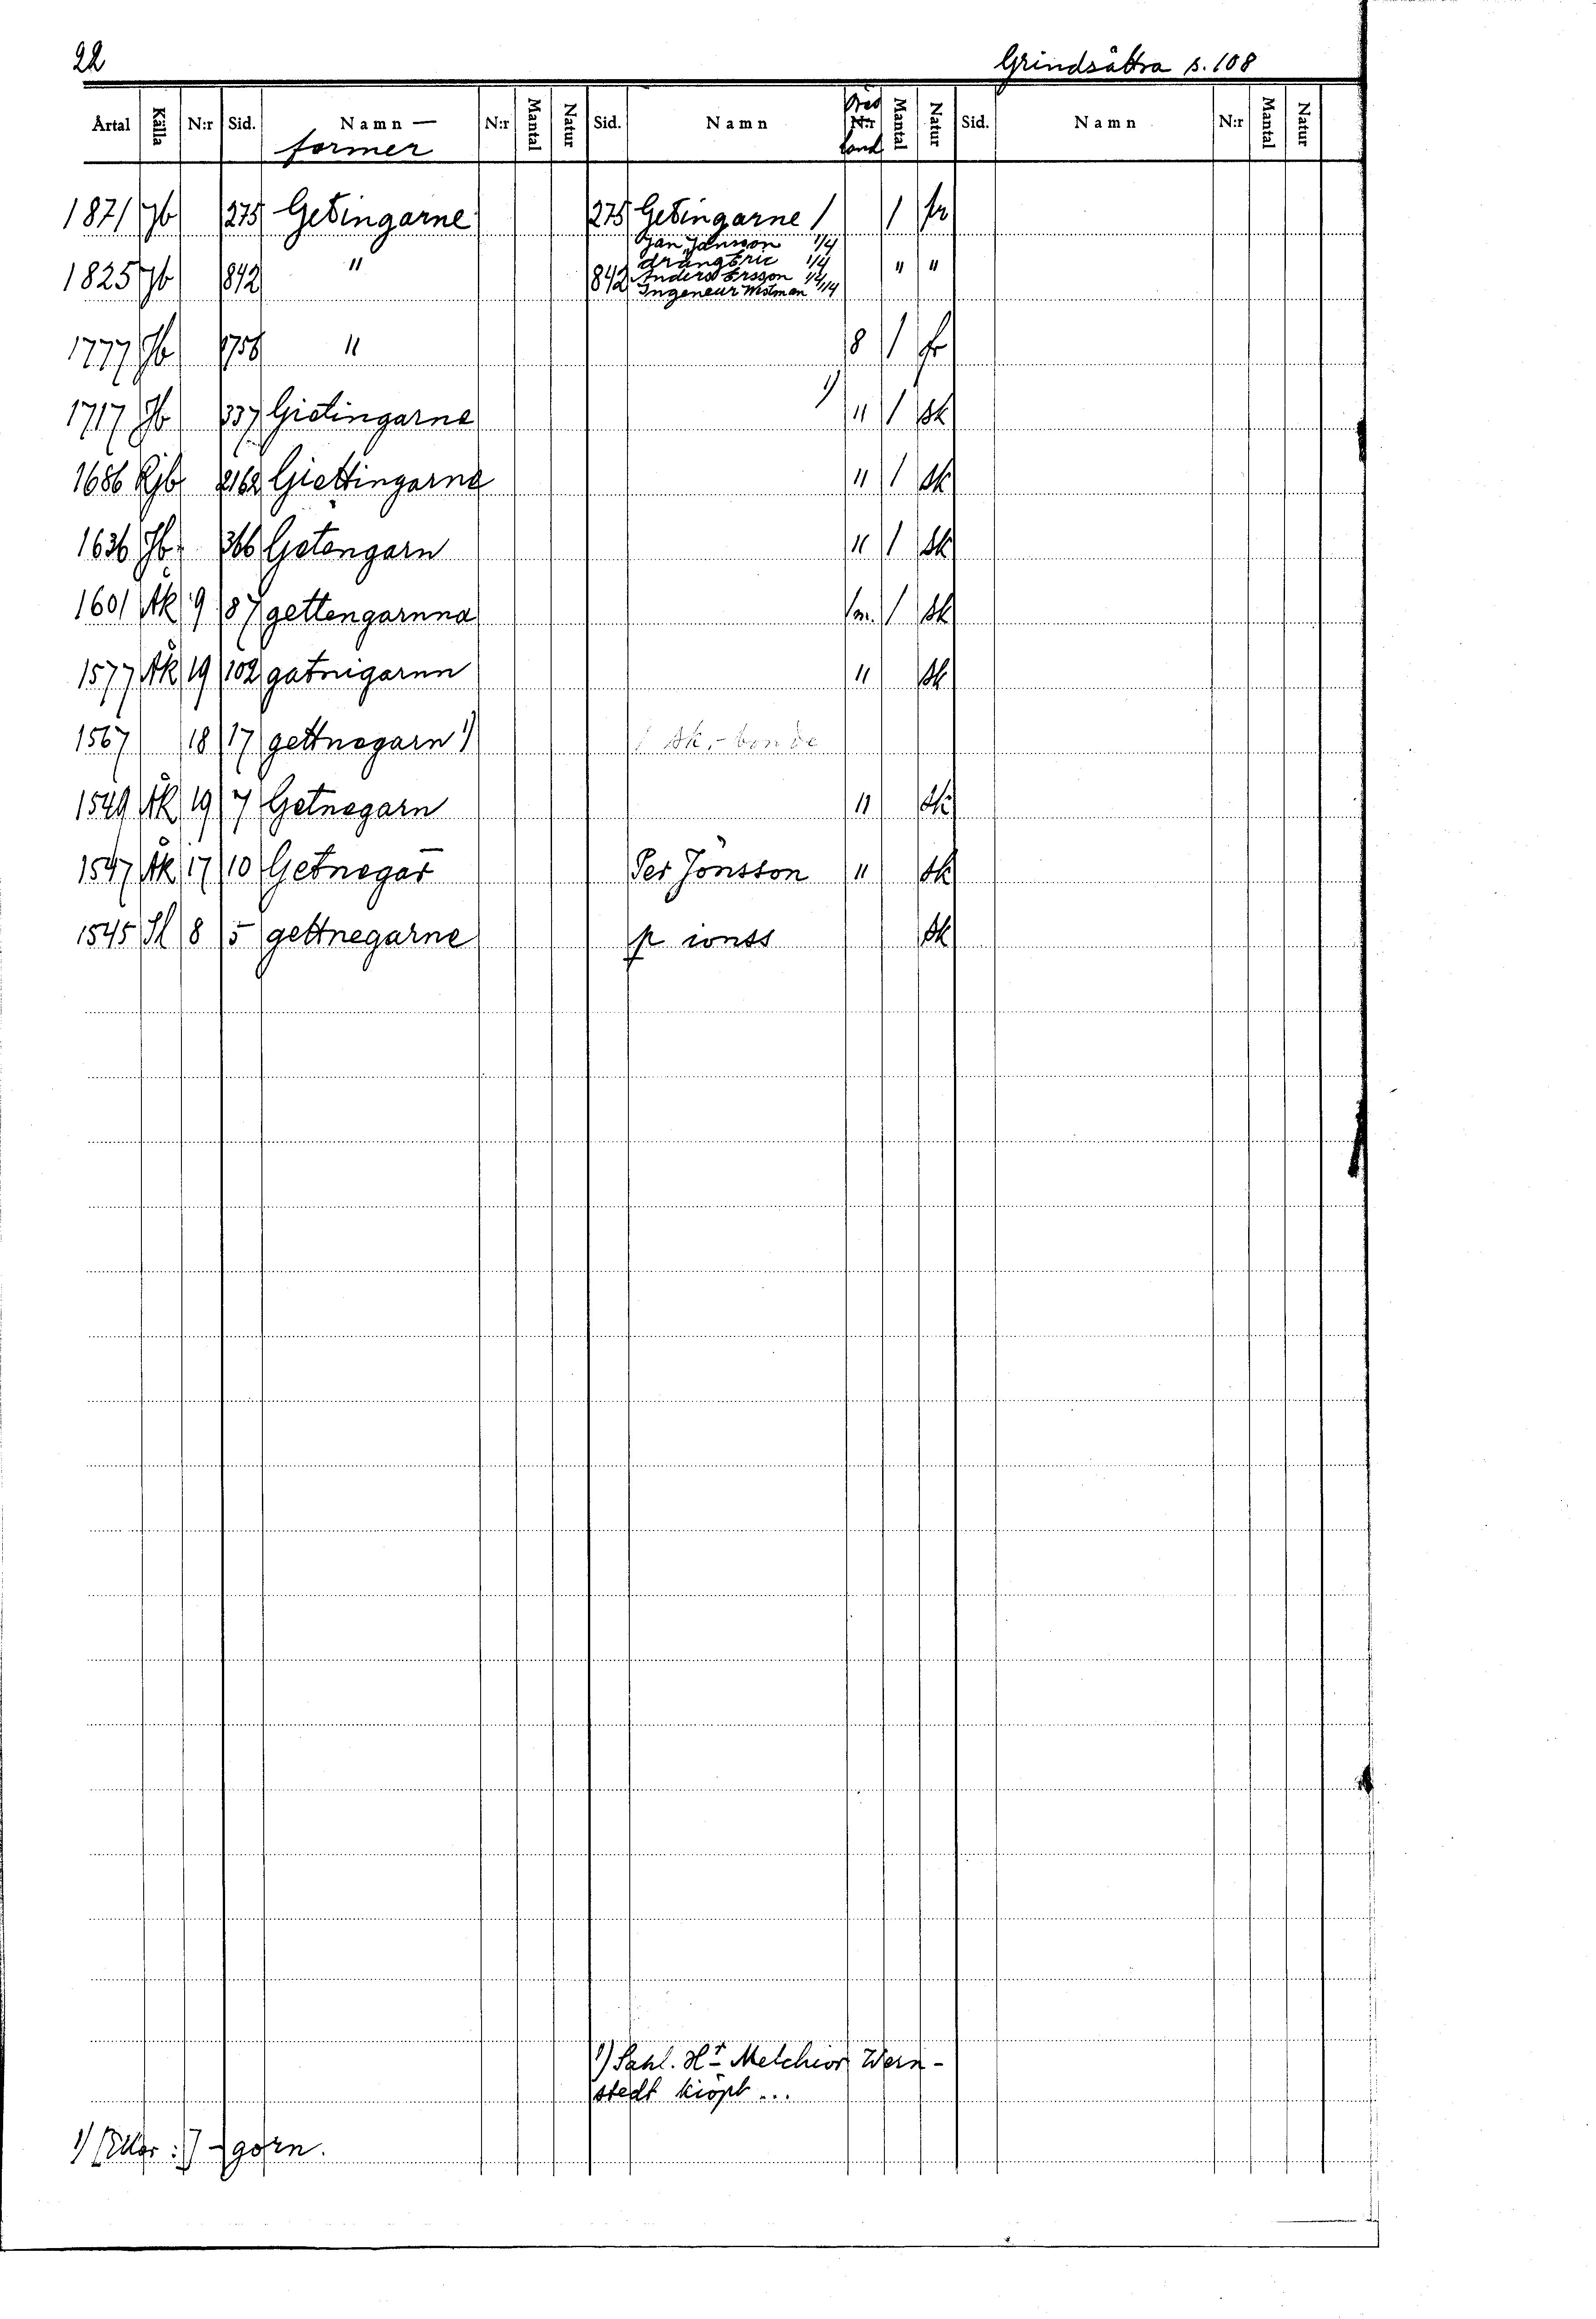 22 Grindsättra s. 108
Årtal Källa N:r Sid. Namn — N:r Mantal Natur Sid. Namn N:r Mantal Natur Sid. Namn N:r Mantal Natur
former land
1871 Jb 275 Getingarne 275 Getingarne 1 1 fr
Jan Jansson 1/4
dräng Eric 1/4
1825 Jb 842 " 842 Anders Ersson 1/4 " "
Ingeneur Westman 1/4
1777 Jb 1758 " 8 1 fr
1717 Jb 337 Gietingarne 1) " 1 sk
1686 Rjb 2162 Giettingarne " 1 sk
1636 Jb 366 Getengarn " 1 sk
1601 Åk 9 87 gettengarnna 1 sk
1577 Åk 19 102 gatnigarnn " sk
1567 18 17 gettnegarn 1) 1 sk.-bonde
1549 Åk 19 7 Getnegarn " sk
1547 Åk 17 10 Getnegar̄ Per Jönsson " sk
1545 Sl 8 5 gettnegarne p ionss sk
1) Sahl. Hr Melchior Wern-
stedt kiöpt ...
1) [Eller :] -gorn.